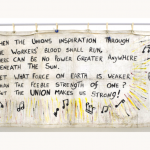 WHEN THE UNIONS INSPIRATION THROUGH
THE WORKERS' BLOOD SHALL RUN,
THERE CAN BE NO POWER GREATER ANYWHERE
BENEATH THE SUN.
YET WHAT FORCE ON EARTH IS WEAKER
THAN THE FEEBLE STRENGTH OF ONE?
BUT THE UNION MAKES US STRONG!